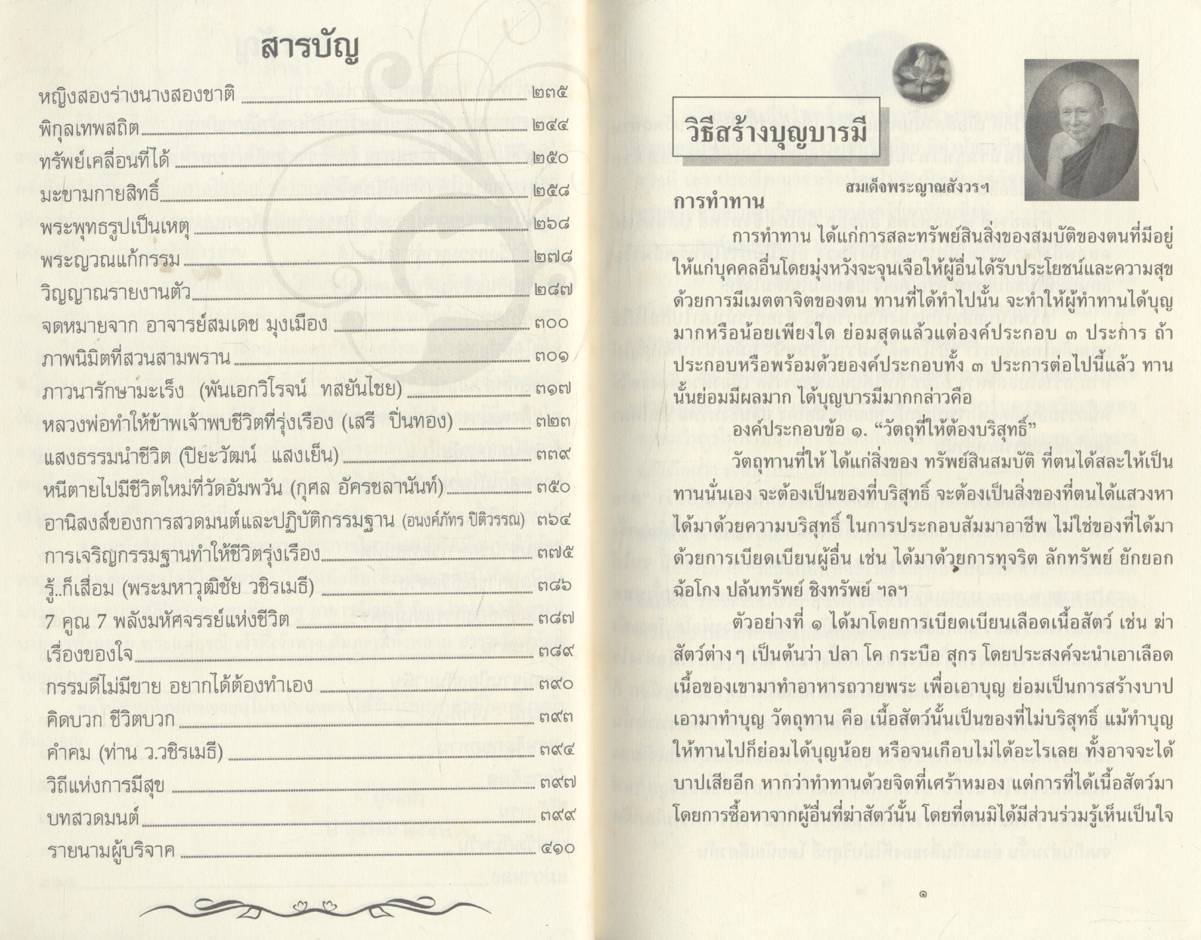 สารบัญ
หญิงสองร่างนางสองชาติ ๒๓๕
พิกุลเทพสถิต ๒๔๔
ทรัพย์เคลื่อนที่ได้ ๒๕๐
มะขามกายสิทธิ์ ๒๕๘
พระพุทธรูปเป็นเหตุ ๒๖๘
พระญวณแก้กรรม ๒๗๘
วิญญาณรายงานตัว ๒๘๗
จดหมายจาก อาจารย์สมเดช มุงเมือง ๓๐๐
ภาพนิมิตที่สวนสามพราน ๓๐๑
ภาวนารักษามะเร็ง (พันเอกวิโรจน์ ทสยันไชย) ๓๑๗
หลวงพ่อทำให้ข้าพเจ้าพบชีวิตที่รุ่งเรือง (เสรี ปิ่นทอง) ๓๒๓
แสงธรรมนำชีวิต (ปิยะวัฒน์ แสงเย็น) ๓๓๙
หนีตายไปมีชีวิตใหม่ที่วัดอัมพวัน (กุศล อัครชลานันท์) ๓๕๐
อานิสงส์ของการสวดมนต์และปฏิบัติกรรมฐาน (อนงค์ภัทร ปิติวรรณ) ๓๖๔
การเจริญกรรมฐานทำให้ชีวิตรุ่งเรือง ๓๗๕
รู้..ก็เสื่อม (พระมหาวุฒิชัย วชิรเมธี) ๓๘๖
7 คูณ 7 พลังมหัศจรรย์แห่งชีวิต ๓๘๗
เรื่องของใจ ๓๘๙
กรรมดีไม่มีขาย อยากได้ต้องทำเอง ๓๙๐
คิดบวก ชีวิตบวก ๓๙๓
คำคม (ท่าน ว.วชิรเมธี) ๓๙๔
วิถีแห่งการมีสุข ๓๙๗
บทสวดมนต์ ๓๙๙
รายนามผู้บริจาค ๔๑๐
วิธีสร้างบุญบารมี
สมเด็จพระญาณสังวรฯ
การทำทาน
การทำทาน ได้แก่การสละทรัพย์สินสิ่งของสมบัติของตนที่มีอยู่
ให้แก่บุคคลอื่นโดยมุ่งหวังจะจุนเจือให้ผู้อื่นได้รับประโยชน์และความสุข
ด้วยการมีเมตตาจิตของตน ทานที่ได้ทำไปนั้น จะทำให้ผู้ทำทานได้บุญ
มากหรือน้อยเพียงใด ย่อมสุดแล้วแต่องค์ประกอบ ๓ ประการ ถ้า
ประกอบหรือพร้อมด้วยองค์ประกอบทั้ง ๓ ประการต่อไปนี้แล้ว ทาน
นั้นย่อมมีผลมาก ได้บุญบารมีมากกล่าวคือ
องค์ประกอบข้อ ๑. “วัตถุที่ให้ต้องบริสุทธิ์”
วัตถุทานที่ให้ ได้แก่สิ่งของ ทรัพย์สินสมบัติ ที่ตนได้สละให้เป็น
ทานนั่นเอง จะต้องเป็นของที่บริสุทธิ์ จะต้องเป็นสิ่งของที่ตนได้แสวงหา
ได้มาด้วยความบริสุทธิ์ ในการประกอบสัมมาอาชีพ ไม่ใช่ของที่ได้มา
ด้วยการเบียดเบียนผู้อื่น เช่น ได้มาด้วยการทุจริต ลักทรัพย์ ยักยอก
ฉ้อโกง ปล้นทรัพย์ ชิงทรัพย์ ฯลฯ
ตัวอย่างที่ ๑ ได้มาโดยการเบียดเบียนเลือดเนื้อสัตว์ เช่น ฆ่า
สัตว์ต่างๆ เป็นต้นว่า ปลา โค กระบือ สุกร โดยประสงค์จะนำเอาเลือด
เนื้อของเขามาทำอาหารถวายพระ เพื่อเอาบุญ ย่อมเป็นการสร้างบาป
เอามาทำบุญ วัตถุทาน คือ เนื้อสัตว์นั้นเป็นของที่ไม่บริสุทธิ์ แม้ทำบุญ
ให้ทานไปก็ย่อมได้บุญน้อย หรือจนเกือบไม่ได้อะไรเลย ทั้งอาจจะได้
บาปเสียอีก หากว่าทำทานด้วยจิตที่เศร้าหมอง แต่การที่ได้เนื้อสัตว์มา
โดยการซื้อหาจากผู้อื่นที่ฆ่าสัตว์นั้น โดยที่ตนมิได้มีส่วนร่วมรู้เห็นเป็นใจ
๑